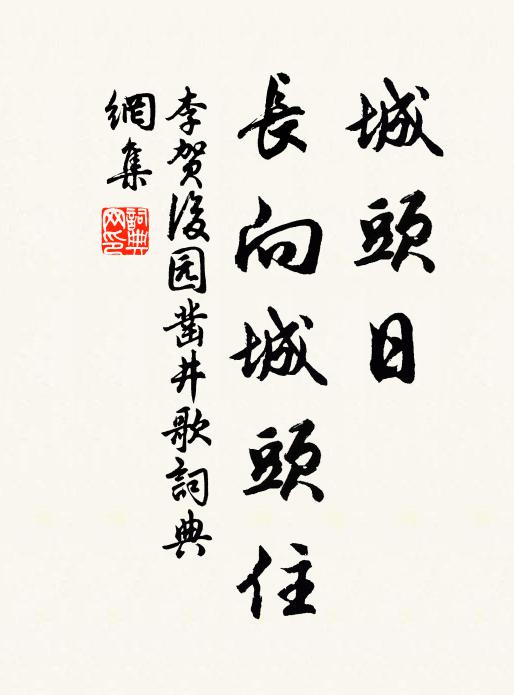 城頭日
長向城頭住
李賀後园凿井歌詞典
網集
詞典网印